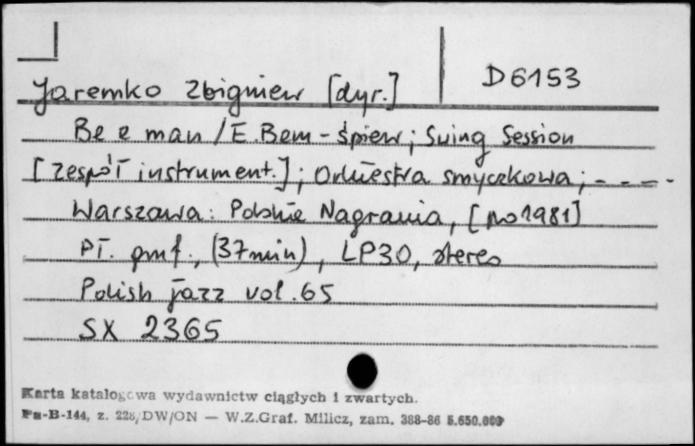 Jaremko Zbigniew [dyr.] D6153
Be e man / E. Bem - śpiew; Swing Session
[zespół instrument.]; Orkiestra smyczkowa; - - - -
Warszawa: Polskie Nagrania, [po 1981]
Pł. gmf., (37 min), LP30, stereo
Polish jazz vol. 65
SX 2365
Karta katalogowa wydawnictw ciągłych i zwartych.
Pu-B-144, z. 228/DW/ON — W.Z.Graf. Milicz, zam. 388-86 5.650.000